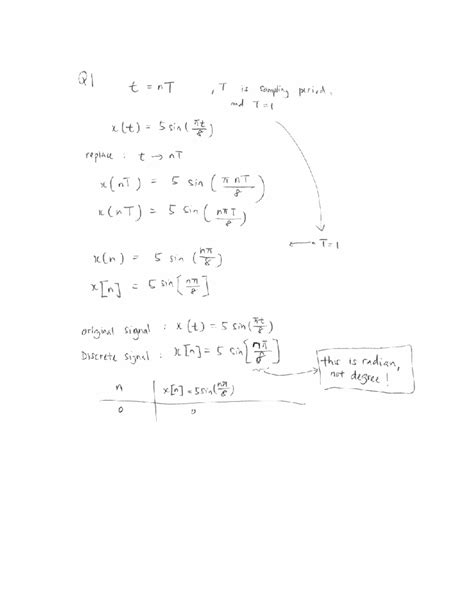 Q1 t = nT , T is sampling period,
and T=1
x(t) = 5 sin(πt/8)
replace : t → nT
x(nT) = 5 sin (π nT/8)
x(nT) = 5 sin (nπT/8)
← T=1
x(n) = 5 sin (nπ/8)
x[n] = 5 sin [nπ/8]
original signal : x(t) = 5 sin(πt/8)
Discrete signal : x[n] = 5 sin[nπ/8]
this is radian,
not degree!
n x[n] = 5sin(nπ/8)
0 0